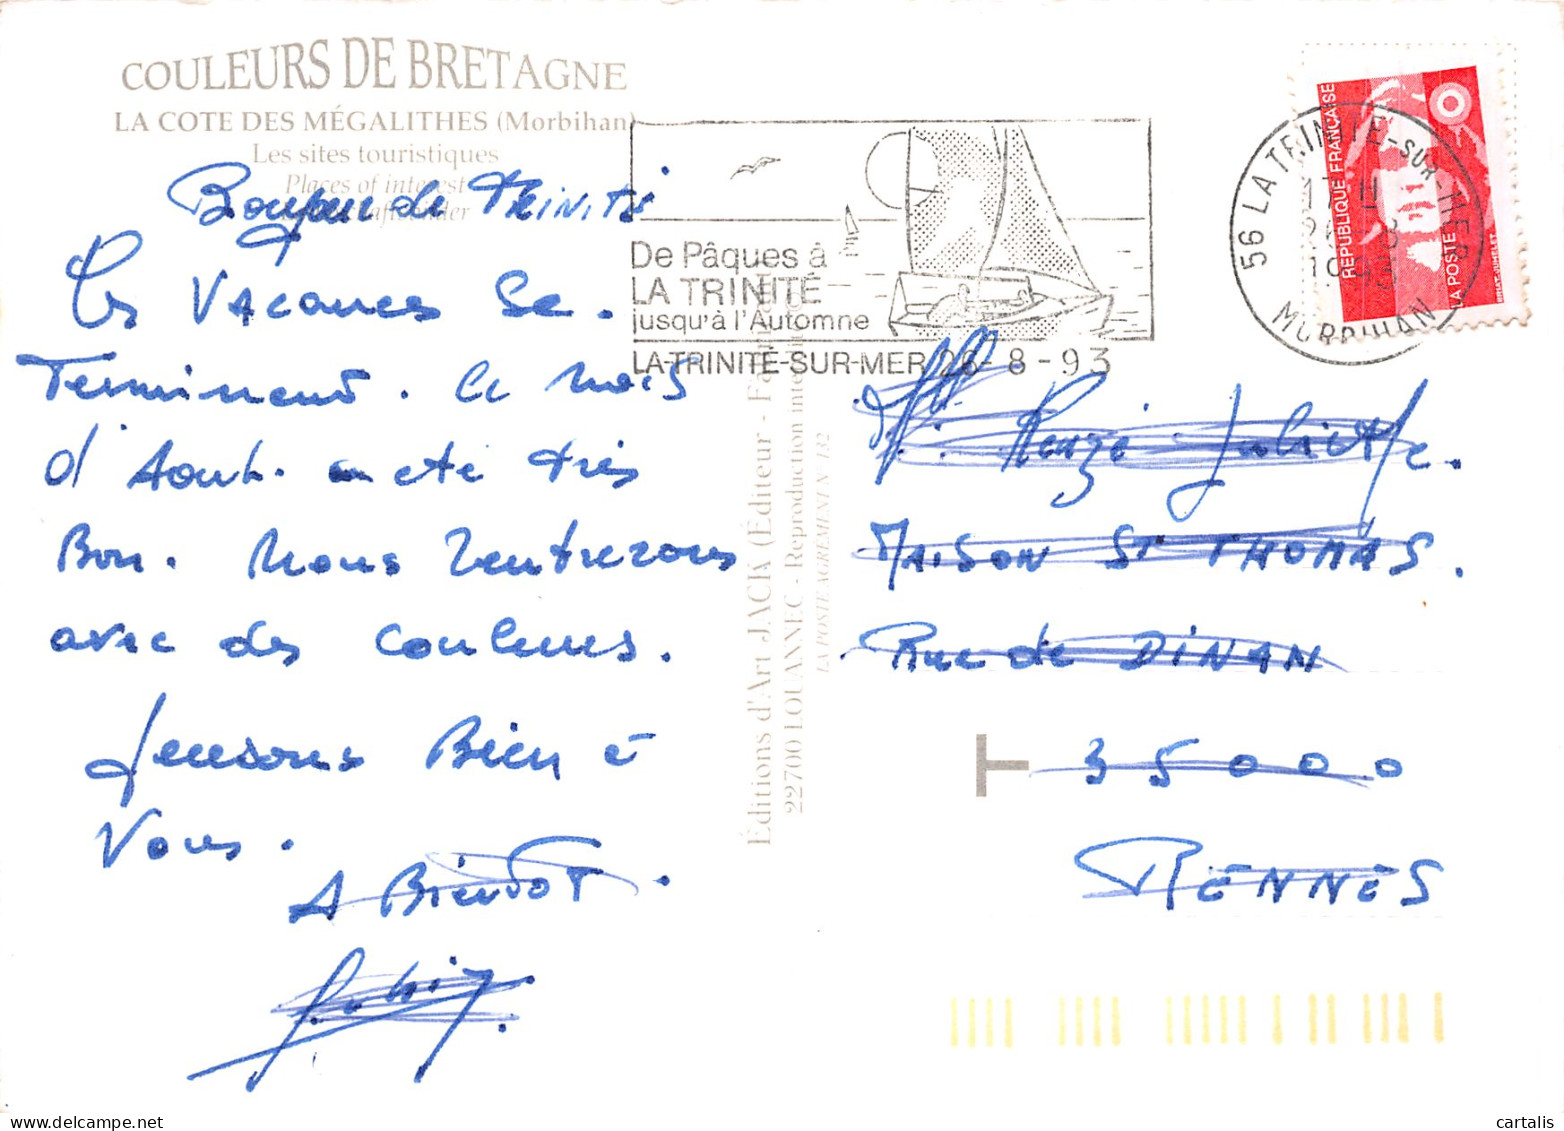 COULEURS DE BRETAGNE
LA COTE DES MÉGALITHES (Morbihan)
Les sites touristiques
Places of interest
Bonjour de TRINITÉ
Les VACANCES Se.
Terminent. Ce mois
d'Aout. a été très
Bon. Nous Rentrerons
avec des couleurs.
Pensons Bien à
Vous.
A Bientot.
De Pâques à
LA TRINITÉ
jusqu'à l'Automne
LA-TRINITÉ-SUR-MER 26-8-93
56 LA TRINITE-SUR-MER
17 H
1993
MORBIHAN
REPUBLIQUE FRANÇAISE
LA POSTE
Éditions d'Art JACK (Éditeur -
22700 LOUANNEC - Reproduction
LA POSTE AGREMENT N° 132
Juliette.
MAISON ST THOMAS.
Rue de DINAN
T
35000
RENNES
cartalis